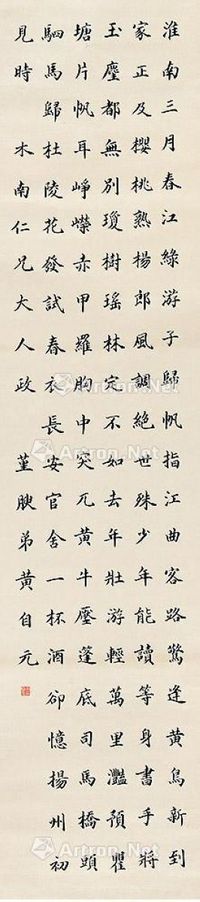 淮南三月春江綠游子歸帆指江曲客路驚逢黃鳥新到
家正及櫻桃熟楊郎風調絕世殊少年能讀等身書手將
玉麈都無別瓊樹瑤林定不如去年壯游輕萬里灩預瞿
塘片帆耳崢嶸赤甲羅胸中突兀黃牛壓蓬底司馬橋頭
駟馬歸杜陵花發試春衣長安官舍一杯酒卻憶揚州初
見時 木南仁兄大人政 堇腴弟黃自元
Artron.Net
Artron.Net
Artron.Net